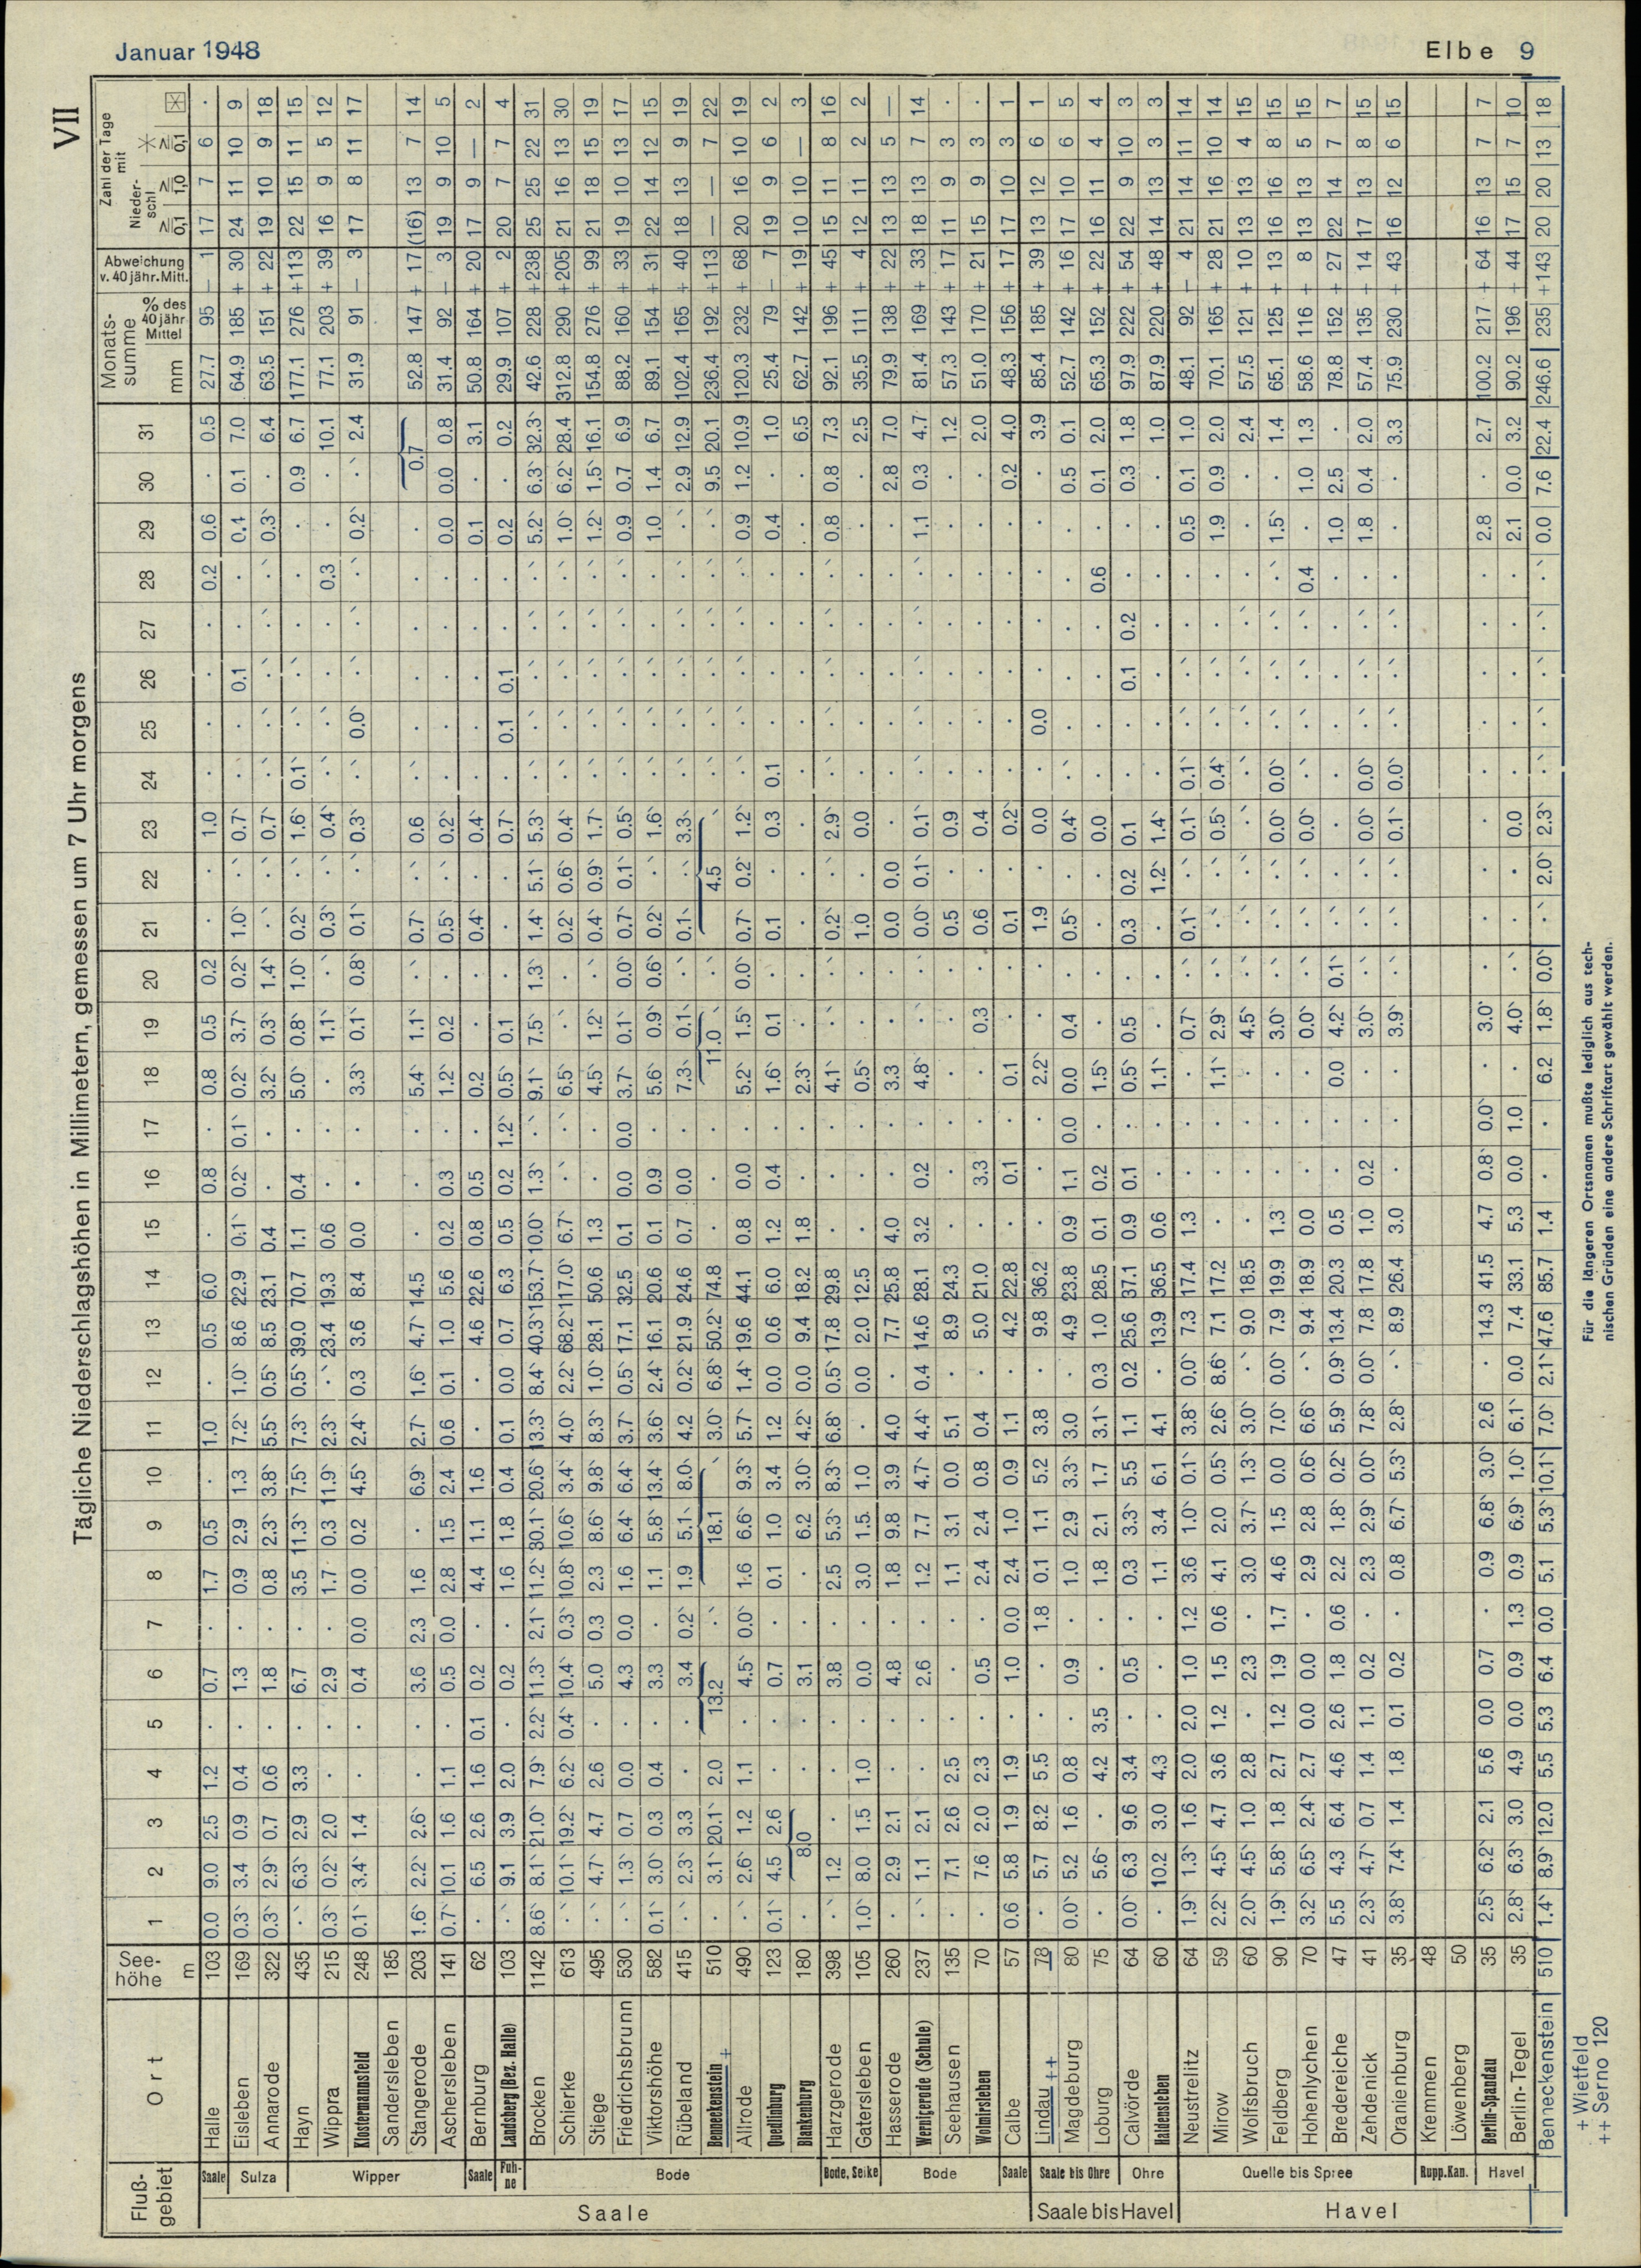 Januar 1948
Elbe 9
VII
Tägliche Niederschlagshöhen in Millimetern, gemessen um 7 Uhr morgens
Fluß-gebiet Ort See-höhe m 1 2 3 4 5 6 7 8 9 10 11 12 13 14 15 16 17 18 19 20 21 22 23 24 25 26 27 28 29 30 31 Monats-summe mm % des 40 jähr Mittel Abweichung v. 40 jähr. Mitt. Zahl der Tage mit Nieder-schl ≥ 0,1 ≥ 1,0 ≥ 0,1
Saale
Saale
Halle 103 0.0 9.0 2.5 1.2 . 0.7 . 1.7 0.5 . 1.0 . 0.5 6.0 . 0.8 . 0.8 0.5 0.2 . . 1.0 . . . . 0.2 0.6 . 0.5 27.7 95 − 1 17 7 6 .
Sulza
Eisleben 169 0.3` 3.4 0.9 0.4 . 1.3 . 0.9 2.9 1.3 7.2` 1.0` 8.6 22.9 0.1` 0.2` 0.1` 0.2` 3.7` 0.2` 1.0` .` 0.7` . . 0.1 . . 0.4 0.1 7.0 64.9 185 + 30 24 11 10 9
Annarode 322 0.3` 2.9` 0.7 0.6 . 1.8 . 0.8 2.3` 3.8` 5.5` 0.5` 8.5 23.1 0.4 . . 3.2` 0.3` 1.4` .` .` 0.7` .` .` .` .` .` 0.3` . 6.4 63.5 151 + 22 19 10 9 18
Wipper
Hayn 435 .` 6.3` 2.9 3.3 . 6.7 . 3.5 11.3` 7.5` 7.3` 0.5` 39.0 70.7 1.1 0.4 . 5.0` 0.8` 1.0` 0.2` .` 1.6` 0.1` .` .` . . . 0.9 6.7 177.1 276 +113 22 15 11 15
Wippra 215 0.3` 0.2` 2.0 . . 2.9 . 1.7 0.3 11.9` 2.3` .` 23.4 19.3 0.6 . . . 1.1` .` 0.3` . 0.4` .` .` . . 0.3 . . 10.1 77.1 203 + 39 16 9 5 12
Klostermannsfeld 248 0.1` 3.4` 1.4 . . 0.4 0.0 0.0 0.2 4.5` 2.4` 0.3 3.6 8.4 0.0 . . 3.3` 0.1` 0.8` 0.1` .` 0.3` .` 0.0` .` .` .` 0.2` .` 2.4 31.9 91 − 3 17 8 11 17
Sandersleben 185
Stangerode 203 1.6` 2.2` 2.6` . . 3.6 2.3 1.6 . 6.9` 2.7` 1.6` 4.7` 14.5 . . . 5.4` 1.1` .` 0.7` .` 0.6 .` . . . . . 0.7 52.8 147 + 17 (16) 13 7 14
Aschersleben 141 0.7` 10.1 1.6 1.1 . 0.5 0.0 2.8 1.5 2.4 0.6 0.1 1.0 5.6 0.2 0.3 . 1.2` 0.2 . 0.5` . 0.2` . . . . . 0.0 0.0 0.8 31.4 92 − 3 19 9 10 5
Saale
Bernburg 62 . 6.5 2.6 1.6 0.1 0.2 . 4.4 1.1 1.6 . . 4.6 22.6 0.8 0.5 . 0.2 . . 0.4` . 0.4` . . . . . 0.1 . 3.1 50.8 164 + 20 17 9 — 2
Fuh-ne
Landsberg (Bez. Halle) 103 .` 9.1 3.9 2.0 . 0.2 . 1.6 1.8 0.4 0.1 0.0 0.7 6.3 0.5 0.2 1.2` 0.5` 0.1 . . . 0.7` . 0.1 0.1 . . 0.2 . 0.2 29.9 107 + 2 20 7 7 4
Bode
Brocken 1142 8.6` 8.1` 21.0` 7.9` 2.2` 11.3` 2.1` 11.2` 30.1` 20.6` 13.3` 8.4` 40.3` 153.7` 10.0` 1.3` .` 9.1` 7.5` 1.3` 1.4` 5.1` 5.3` .` .` .` .` .` 5.2` 6.3` 32.3` 42.6 228 +238 25 25 22 31
Schierke 613 .` 10.1` 19.2` 6.2` 0.4` 10.4` 0.3` 10.8` 10.6` 3.4` 4.0` 2.2` 68.2` 117.0` 6.7` .` .` 6.5` .` . 0.2` 0.6` 0.4` .` .` .` .` .` 1.0` 6.2` 28.4 312.8 290 +205 21 16 13 30
Stiege 495 .` 4.7` 4.7 2.6 . 5.0 0.3 2.3 8.6` 9.8` 8.3` 1.0` 28.1 50.6 1.3 . . 4.5` 1.2` .` 0.4` 0.9` 1.7` .` .` .` .` .` 1.2` 1.5` 16.1 154.8 276 + 99 21 18 15 19
Friedrichsbrunn 530 .` 1.3` 0.7 0.0 . 4.3 0.0 1.6 6.4` 6.4` 3.7` 0.5` 17.1 32.5 0.1 0.0 0.0 3.7` 0.1` 0.0` 0.7` 0.1` 0.5` .` .` .` .` .` 0.9 0.7 6.9 88.2 160 + 33 19 10 13 17
Viktorshöhe 582 0.1` 3.0` 0.3 0.4 . 3.3 . 1.1 5.8` 13.4` 3.6` 2.4` 16.1 20.6 0.1 0.9 . 5.6` 0.9` 0.6` 0.2` .` 1.6` .` .` .` .` .` 1.0 1.4 6.7 89.1 154 + 31 22 14 12 15
Rübeland 415 .` 2.3` 3.3 . . 3.4 0.2` 1.9 5.1` 8.0` 4.2 0.2` 21.9 24.6 0.7 0.0 . 7.3` 0.1` .` 0.1` .` 3.3` .` .` .` .` .` .` 2.9 12.9 102.4 165 + 40 18 13 9 19
Benneckenstein + 510 . 3.1` 20.1` 2.0 13.2 .` 18.1 3.0` 6.8` 50.2` 74.8 . . . 11.0 .` 4.5 .` .` .` .` .` .` 9.5 20.1 236.4 192 +113 — — 7 22
Allrode 490 .` 2.6` 1.2 1.1 . 4.5` 0.0` 1.6 6.6` 9.3` 5.7` 1.4` 19.6 44.1 0.8 0.0 . 5.2` 1.5` 0.0` 0.7` 0.2` 1.2` .` .` .` .` .` 0.9 1.2 10.9 120.3 232 + 68 20 16 10 19
Quedlinburg 123 0.1` 4.5 2.6 . . 0.7 . 0.1 1.0 3.4 1.2 0.0 0.6 6.0 1.2 0.4 . 1.6` 0.1 . 0.1 . 0.3 0.1 . . . . 0.4 . 1.0 25.4 79 − 7 19 9 6 2
Blankenburg 180 . 8.0 . . 3.1 . . 6.2 3.0` 4.2` 0.0 9.4 18.2 1.8 . . 2.3` . . . . . . . . . . . . 6.5 62.7 142 + 19 10 10 — 3
Bode, Selke
Harzgerode 398 .` 1.2 . . . 3.8 . 2.5 5.3` 8.3` 6.8` 0.5` 17.8 29.8 . . . 4.1` .` .` 0.2` .` 2.9` .` .` .` .` .` 0.8 0.8 7.3 92.1 196 + 45 15 11 8 16
Gatersleben 105 1.0` 8.0 1.5 1.0 . 0.0 . 3.0 1.5 1.0 . 0.0 2.0 12.5 . . . 0.5` . . 1.0 . 0.0 . . . . . . . 2.5 35.5 111 + 4 12 11 2 2
Bode
Hasserode 260 . 2.9 2.1 . . 4.8 . 1.8 9.8 3.9 4.0 . 7.7 25.8 4.0 . . 3.3 . . 0.0 0.0 . . . . . . . 2.8 7.0 79.9 138 + 22 13 13 5 —
Wernigerode (Schule) 237 .` 1.1 2.1 . . 2.6 . 1.2 7.7 4.7` 4.4` 0.4 14.6 28.1 3.2 0.2 . 4.8` .` .` 0.0` 0.1` 0.1` .` .` .` .` .` 1.1 0.3 4.7 81.4 169 + 33 18 13 7 14
Seehausen 135 . 7.1 2.6 2.5 . . . 1.1 3.1 0.0 5.1 . 8.9 24.3 . . . . . . 0.5 . 0.9 . . . . . . . 1.2 57.3 143 + 17 11 9 3 .
Wolmirsleben 70 . 7.6 2.0 2.3 . 0.5 . 2.4 2.4 0.8 0.4 . 5.0 21.0 . 3.3 . . 0.3 . 0.6 . 0.4 . . . . . . . 2.0 51.0 170 + 21 15 9 3 .
Saale
Calbe 57 0.6 5.8 1.9 1.9 . 1.0 0.0 2.4 1.0 0.9 1.1 . 4.2 22.8 . 0.1 . 0.1 . . 0.1 . 0.2` . . . . . . 0.2 4.0 48.3 156 + 17 17 10 3 1
Saale bis Havel
Saale bis Ohre
Lindau ++ 78 . 5.7 8.2 5.5 . . 1.8 0.1 1.1 5.2 3.8 . 9.8 36.2 . . . 2.2` . . 1.9 . 0.0 . 0.0 . . . . . 3.9 85.4 185 + 39 13 12 6 1
Magdeburg 80 0.0` 5.2 1.6 0.8 . 0.9 . 1.0 2.9 3.3` 3.0 . 4.9 23.8 0.9 1.1 0.0 0.0 0.4 . 0.5` . 0.4` .` . . . . . 0.5 0.1 52.7 142 + 16 17 10 6 5
Loburg 75 . 5.6` . 4.2 3.5 . . 1.8 2.1 1.7 3.1` 0.3 1.0 28.5 0.1 0.2 . 1.5` . . . . 0.0 . . . . 0.6 . 0.1 2.0 65.3 152 + 22 16 11 4 4
Ohre
Calvörde 64 0.0` 6.3 9.6 3.4 . 0.5 . 0.3 3.3` 5.5 1.1 0.2 25.6 37.1 0.9 0.1 . 0.5` 0.5 . 0.3 0.2 0.1 . . 0.1 0.2 . . 0.3 1.8 97.9 222 + 54 22 9 10 3
Haldensleben 60 . 10.2 3.0 4.3 . . . 1.1 3.4 6.1 4.1 . 13.9 36.5 0.6 . . 1.1` . . . 1.2` 1.4` . . . . . . . 1.0 87.9 220 + 48 14 13 3 3
Havel
Quelle bis Spree
Neustrelitz 64 1.9` 1.3` 1.6 2.0 2.0 1.0 1.2 3.6 1.0` 0.1` 3.8` 0.0` 7.3 17.4 1.3 . . . 0.7` .` 0.1` .` 0.1` 0.1` .` .` . . 0.5 0.1 1.0 48.1 92 − 4 21 14 11 14
Mirow 59 2.2` 4.5` 4.7 3.6 1.2 1.5 0.6 4.1 2.0 0.5` 2.6` 8.6` 7.1 17.2 . . . 1.1` 2.9` .` .` .` 0.5` 0.4` .` .` . . 1.9 0.9 2.0 70.1 165 + 28 21 16 10 14
Wolfsbruch 60 2.0` 4.5` 1.0 2.8 . 2.3 . 3.0 3.7` 1.3` 3.0` .` 9.0 18.5 . . . . 4.5` .` .` .` .` .` .` .` .` . . . 2.4 57.5 121 + 10 13 13 4 15
Feldberg 90 1.9` 5.8` 1.8 2.7 1.2 1.9 1.7 4.6 1.5 0.0 7.0` 0.0` 7.9 19.9 1.3 . . . 3.0` .` .` .` 0.0` 0.0` .` .` .` .` 1.5` . 1.4 65.1 125 + 13 16 16 8 15
Hohenlychen 70 3.2` 6.5` 2.4` 2.7 0.0 0.0 . 2.9 2.8 0.6` 6.6` .` 9.4 18.9 0.0 . . . 0.0` .` .` .` 0.0` .` .` .` .` 0.4 . 1.0 1.3 58.6 116 + 8 13 13 5 15
Bredereiche 47 5.5 4.3 6.4 4.6 2.6 1.8 0.6 2.2 1.8` 0.2` 5.9` 0.9` 13.4 20.3 0.5 . . 0.0 4.2` 0.1` . . . . . . . . 1.0 2.5 . 78.8 152 + 27 22 14 7 7
Zehdenick 41 2.3` 4.7` 0.7 1.4 1.1 0.2 . 2.3 2.9` 0.0` 7.8` 0.0` 7.8 17.8 1.0 0.2 . . 3.0` .` .` .` 0.0` 0.0` .` .` .` . 1.8 0.4 2.0 57.4 135 + 14 17 13 8 15
Oranienburg 35 3.8` 7.4` 1.4 1.8 0.1 0.2 . 0.8 6.7` 5.3` 2.8` .` 8.9 26.4 3.0 . . . 3.9` .` .` .` 0.1` 0.0` .` .` .` . . . 3.3 75.9 230 + 43 16 12 6 15
Rupp.Kan.
Kremmen 48
Löwenberg 50
Havel
Berlin-Spandau 35 2.5` 6.2` 2.1 5.6 0.0 0.7 . 0.9 6.8` 3.0` 2.6 . 14.3 41.5 4.7 0.8` 0.0` . 3.0` . . . . . . . . . 2.8 . 2.7 100.2 217 + 64 16 13 7 7
Berlin-Tegel 35 2.8` 6.3` 3.0 4.9 0.0 0.9 1.3 0.9 6.9` 1.0` 6.1` 0.0 7.4 33.1 5.3 0.0 1.0 . 4.0` .` . . 0.0 . . . . . 2.1 0.0 3.2 90.2 196 + 44 17 15 7 10
Benneckenstein 510 1.4` 8.9` 12.0 5.5 5.3 6.4 0.0 5.1 5.3` 10.1` 7.0` 2.1` 47.6 85.7 1.4 . . 6.2 1.8` 0.0` .` 2.0` 2.3` .` .` .` .` .` 0.0 7.6 22.4 246.6 235 +143 20 20 13 18
+ Wietfeld
++ Serno 120
Für die längeren Ortsnamen mußte lediglich aus tech-
nischen Gründen eine andere Schriftart gewählt werden.